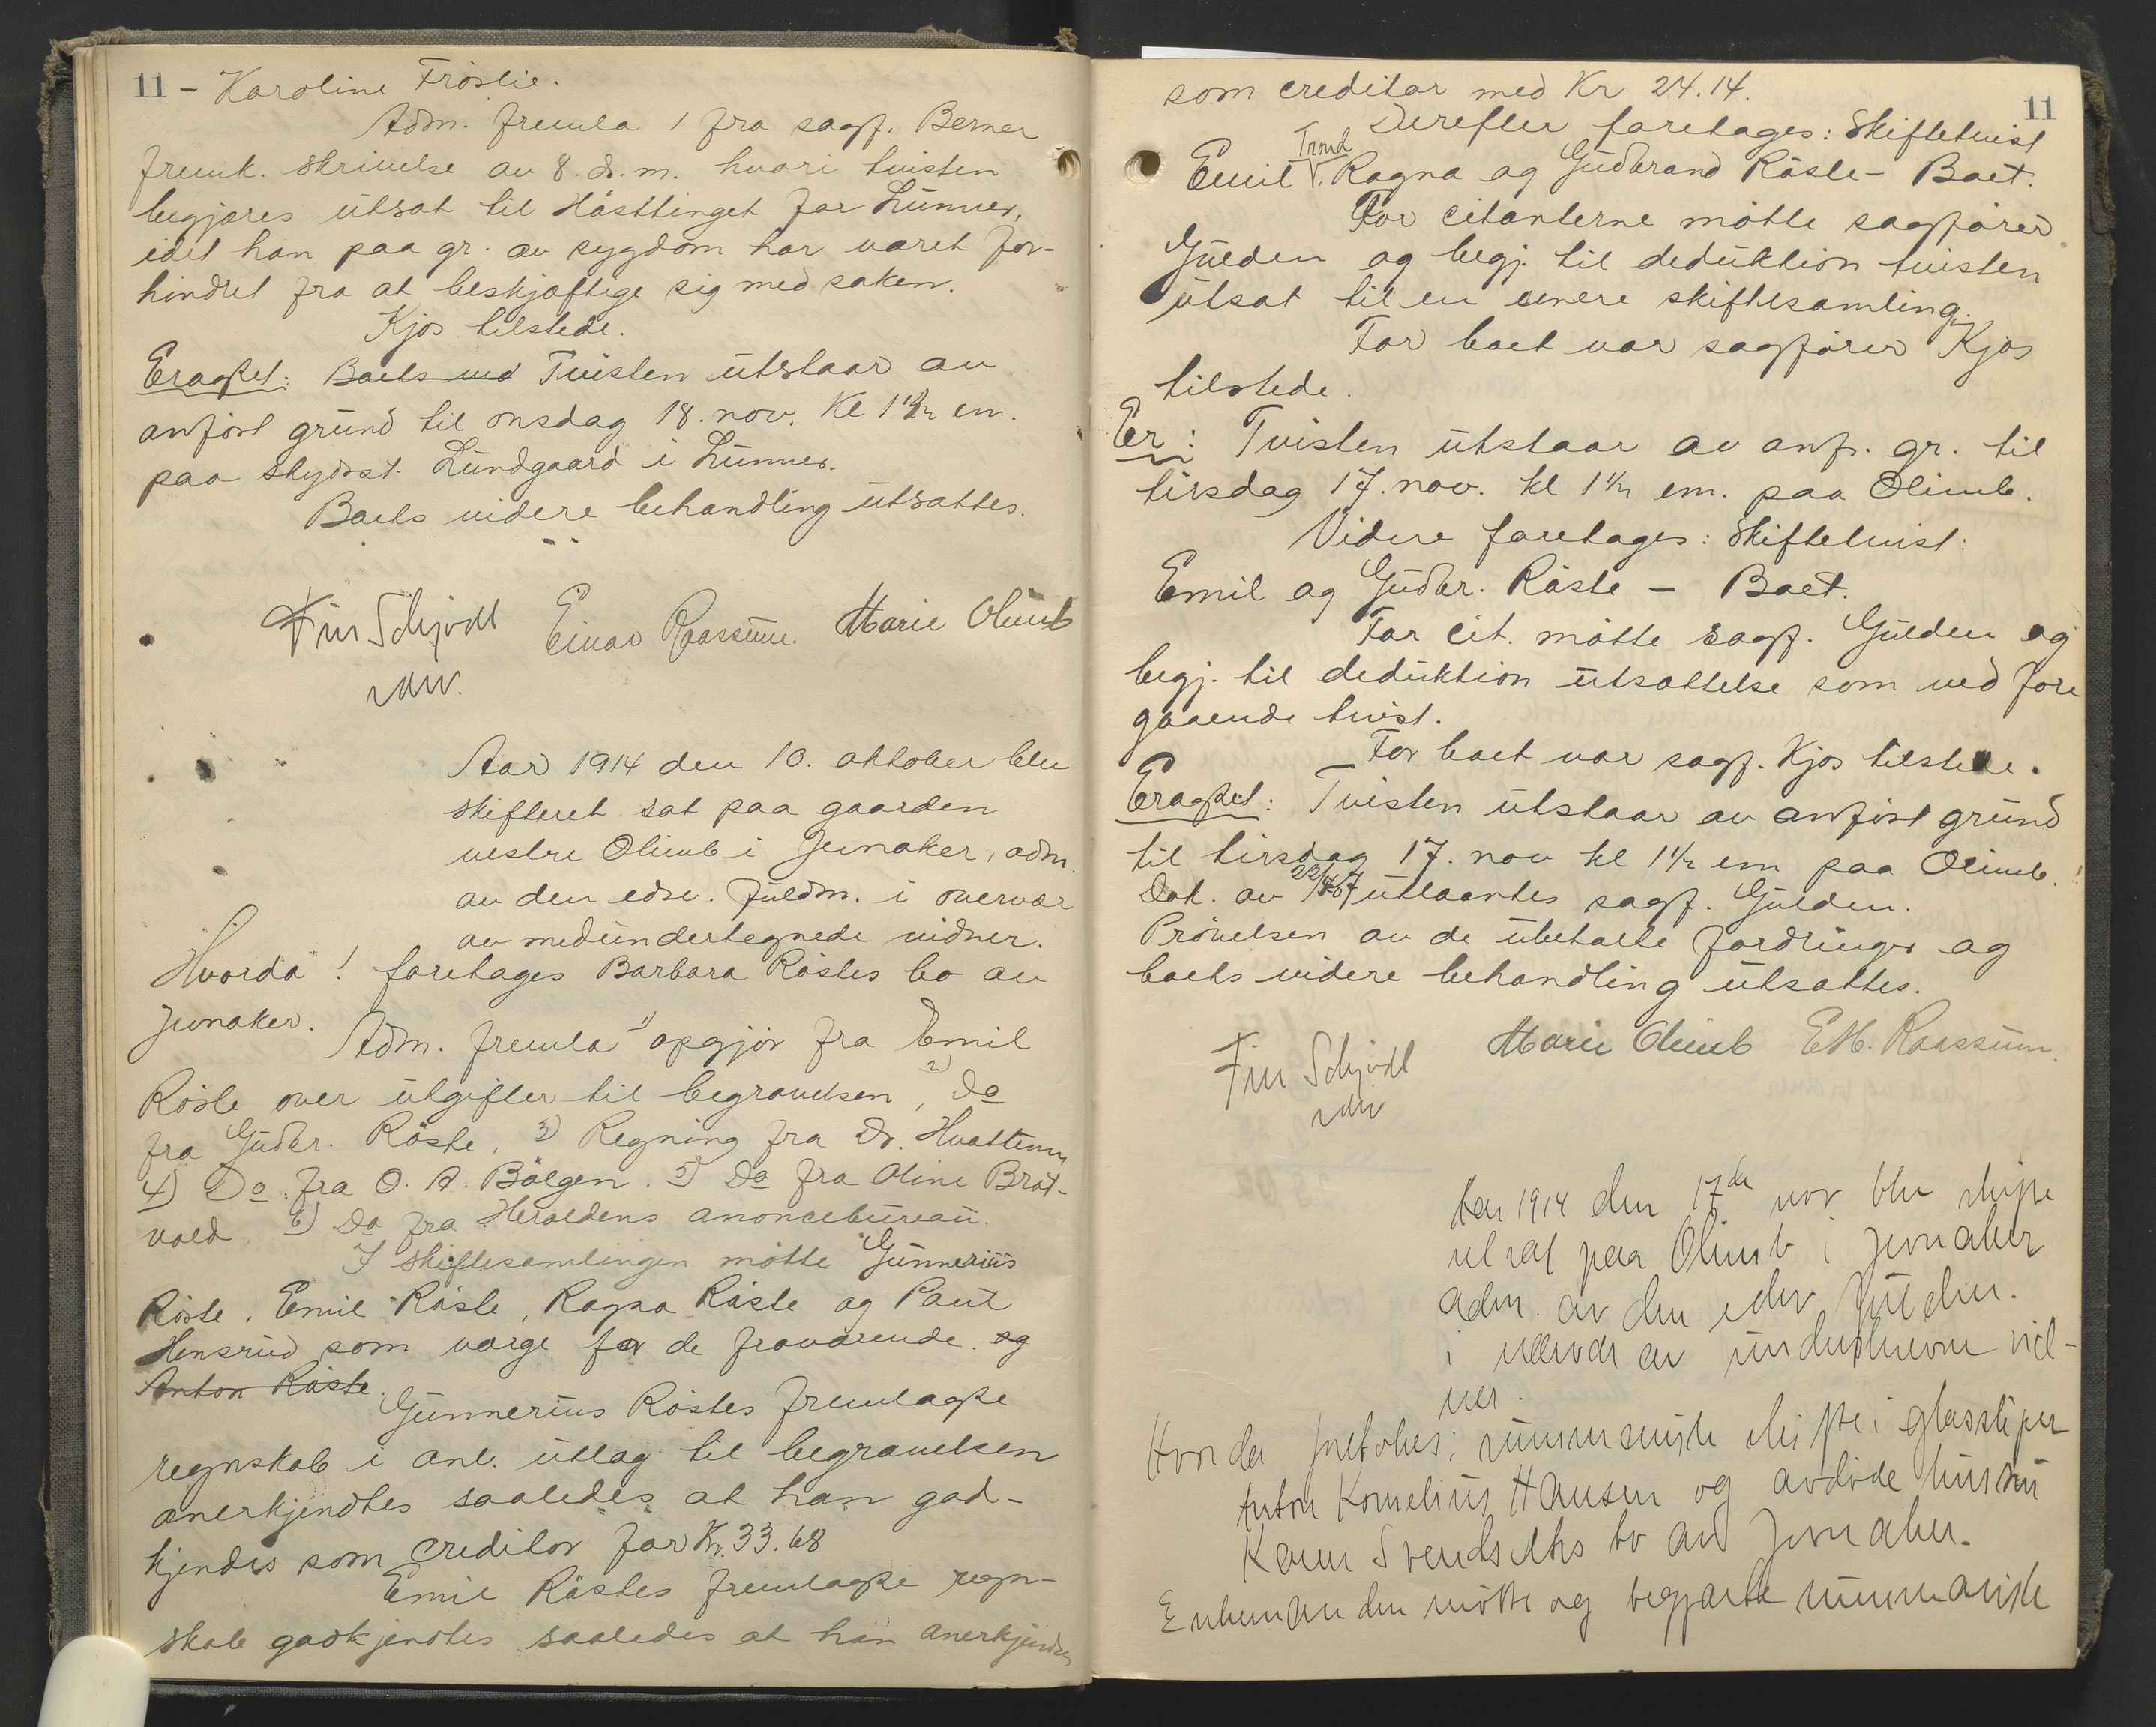 11 - Karoline Fröslie.
Adm. fremla 1 fra sagf. Berner
fremk. skrivelse av 8. ds. m. hvori tvisten
begjæres utsat til Hösttinget for Lunner,
idet han paa gr. av sygdom har været for-
hindret fra at beskjæftige sig med saken.
Kjos tilstede.
Eragtet: Boets ved Tvisten utstaar av
anfört grund til onsdag 18. nov. Kl 1 1/2 em.
paa skydsst. Lundgaard i Lunner.
Boets videre behandling utsattes.
Fin Schjödt Einar Raassum. Marie Olimb
Aar 1914 den 10. oktober blev
skifteret sat paa gaarden
vestre Olimb i Jevnaker, adm.
av den edsv. fuldm. i overvær
av medundertegnede vidner.
Hvorda! foretages Barbara Röstes bo av
Jevnaker.
Adm. fremla 1) opgjör fra Emil
Röste over utgifter til begravelsen, 2) Do
fra Gudbr. Röste, 3) Regning fra Dr. Hvattum
4) Do. fra O. A. Bölgen. 5) Do fra Oline Bröt-
vold. 6) Do fra Heroldens anoncebureau.
I skiftesamlingen mötte Gunnerius
Röste, Emil Röste, Ragna Röste og Paul
Hensrud som værge for de fraværende. og
Anton Röste.
Gunnerius Röstes fremlagte
regnskab i anl. utlæg til begravelsen
anerkjendtes saaledes at han god-
kjendes som creditor for Kr. 33.68
Emil Röstes fremlagte regn-
skab godkjendtes saaledes at han anerkjendes
11
som creditor med Kr 24.14.
Derefter foretages: Skiftetvist
Trond
Emil V. Ragna og Gudbrand Röste - Boet.
For citanterne mötte sagförer
Gulden og begj. til deduktion tvisten
utsat til en senere skiftesamling.
For boet var sagförer Kjos
tilstede.
Er: Tvisten utstaar av anf. gr. til
tirsdag 17. nov. kl 1 1/2 em. paa Olimb.
Videre foretages: Skiftetvist:
Emil og Gudbr. Röste - Boet.
For cit. mötte sagf. Gulden og
begj. til deduktion utsættelse som ved fore
gaaende tvist.
For boet var sagf. Kjos tilstede.
Eragtet: Tvisten utstaar av anfört grund
til tirsdag 17. nov kl 1 1/2 em paa Olimb.
Dok. av utlaantes sagf. Gulden.
Prövelsen av de ubetalte fordringer og
boets videre behandling utsattes.
Fin Schjödt Marie Olimb E.M. Raassum.
Aar 1914 den 17de nov blev skifte
ret sat paa Olimb i Jevnaker
adm. av den edsv fuldm.
i nærvær av underskrevne vid-
ner.
Hvorda foretokes: summarisk skifte i glassliper
Anton Kornelius Hansen og avdöde hustru
Karen Svendsdtrs bo av Jevnaker.
Enkemanden mötte og begjærte summarisk